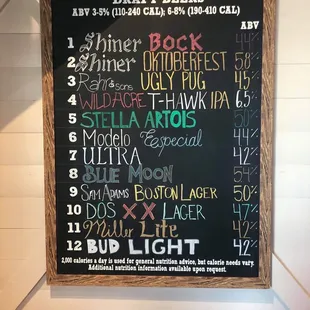 DRAFT BEERS
ABV 3-5% (110-240 CAL); 6-8% (190-410 CAL)
ABV
1 Shiner BOCK 44%
2 Shiner OKTOBERFEST 58%
3 Rahr & SONS UGLY PUG 45%
4 WILD ACRE T-HAWK IPA 6.5%
5 STELLA ARTOIS 50%
6 Modelo Especial 44%
7 ULTRA 42%
8 BLUE MOON 54%
9 SAM ADAMS BOSTON LAGER 50%
10 DOS XX LAGER 47%
11 Miller Lite 42%
12 BUD LIGHT 42%
2,000 calories a day is used for general nutrition advice, but calorie needs vary.
Additional nutrition information available upon request.